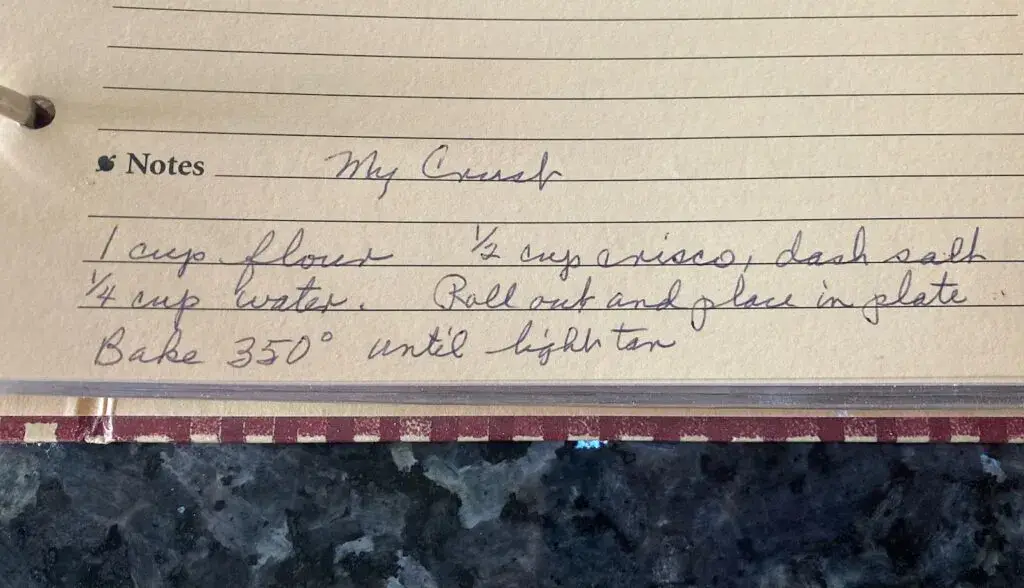 Notes My Crust
1 cup flour 1/2 cup crisco, dash salt
1/4 cup water. Roll out and place in plate
Bake 350° until light tan